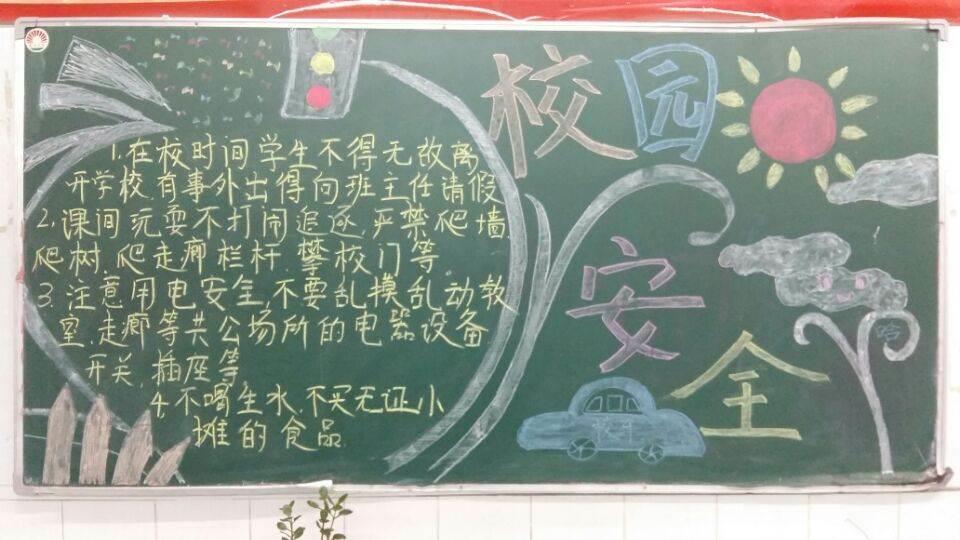 校园
安全
1.在校时间学生不得无故离
开学校.有事外出得向班主任请假
2.课间玩耍不打闹追逐.严禁爬墙.
爬树.爬走廊栏杆.攀校门等.
3.注意用电安全,不要乱摸乱动教
室.走廊等共公场所的电器设备
开关.插座等.
4.不喝生水.不买无证小
摊的食品.